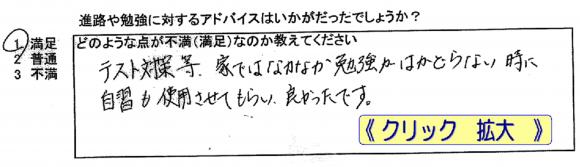 進路や勉強に対するアドバイスはいかがだったでしょうか？
1 満足
2 普通
3 不満
どのような点が不満(満足)なのか教えてください
テスト対策等、家ではなかなか勉強がはかどらない時に
自習も使用させてもらい、良かったです。
《 クリック 拡大 》